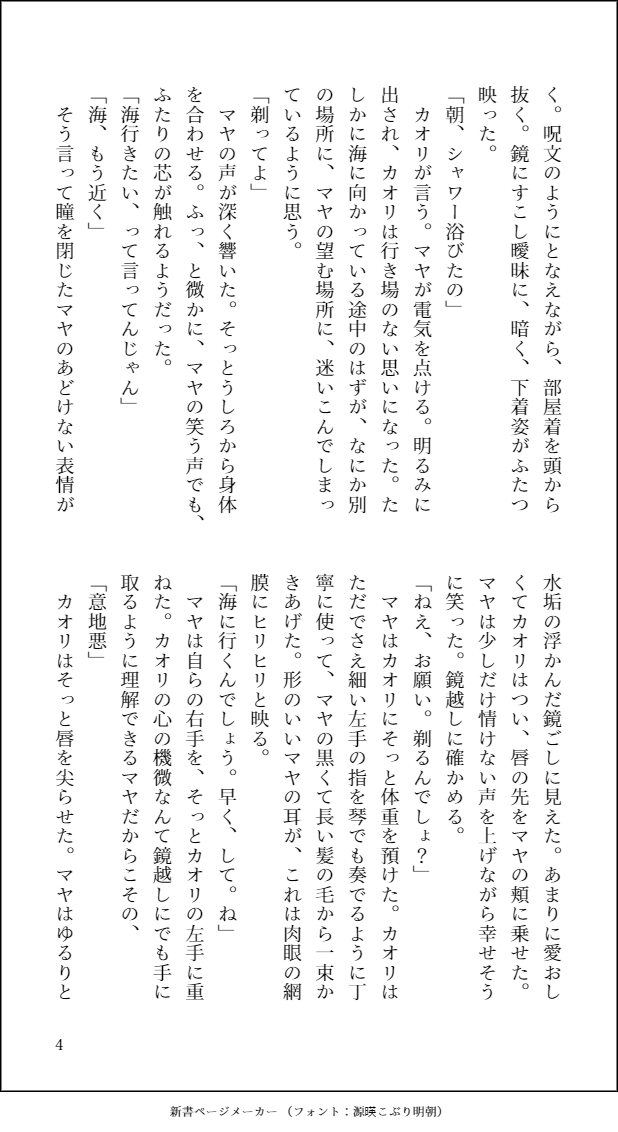 く。呪文のようにとなえながら、部屋着を頭から
抜く。鏡にすこし曖昧に、暗く、下着姿がふたつ
映った。
「朝、シャワー浴びたの」
　カオリが言う。マヤが電気を点ける。明るみに
出され、カオリは行き場のない思いになった。た
しかに海に向かっている途中のはずが、なにか別
の場所に、マヤの望む場所に、迷いこんでしまっ
ているように思う。
「剃ってよ」
　マヤの声が深く響いた。そっとうしろから身体
を合わせる。ふっ、と微かに、マヤの笑う声でも、
ふたりの芯が触れるようだった。
「海行きたい、って言ってんじゃん」
「海、もう近く」
　そう言って瞳を閉じたマヤのあどけない表情が
水垢の浮かんだ鏡ごしに見えた。あまりに愛おし
くてカオリはつい、唇の先をマヤの頬に乗せた。
マヤは少しだけ情けない声を上げながら幸せそう
に笑った。鏡越しに確かめる。
「ねえ、お願い。剃るんでしょ？」
　マヤはカオリにそっと体重を預けた。カオリは
ただでさえ細い左手の指を琴でも奏でるように丁
寧に使って、マヤの黒くて長い髪の毛から一束か
きあげた。形のいいマヤの耳が、これは肉眼の網
膜にヒリヒリと映る。
「海に行くんでしょう。早く、して。ね」
　マヤは自らの右手を、そっとカオリの左手に重
ねた。カオリの心の機微なんて鏡越しにでも手に
取るように理解できるマヤだからこその、
「意地悪」
　カオリはそっと唇を尖らせた。マヤはゆるりと
4
新書ページメーカー（フォント：源暎こぶり明朝）